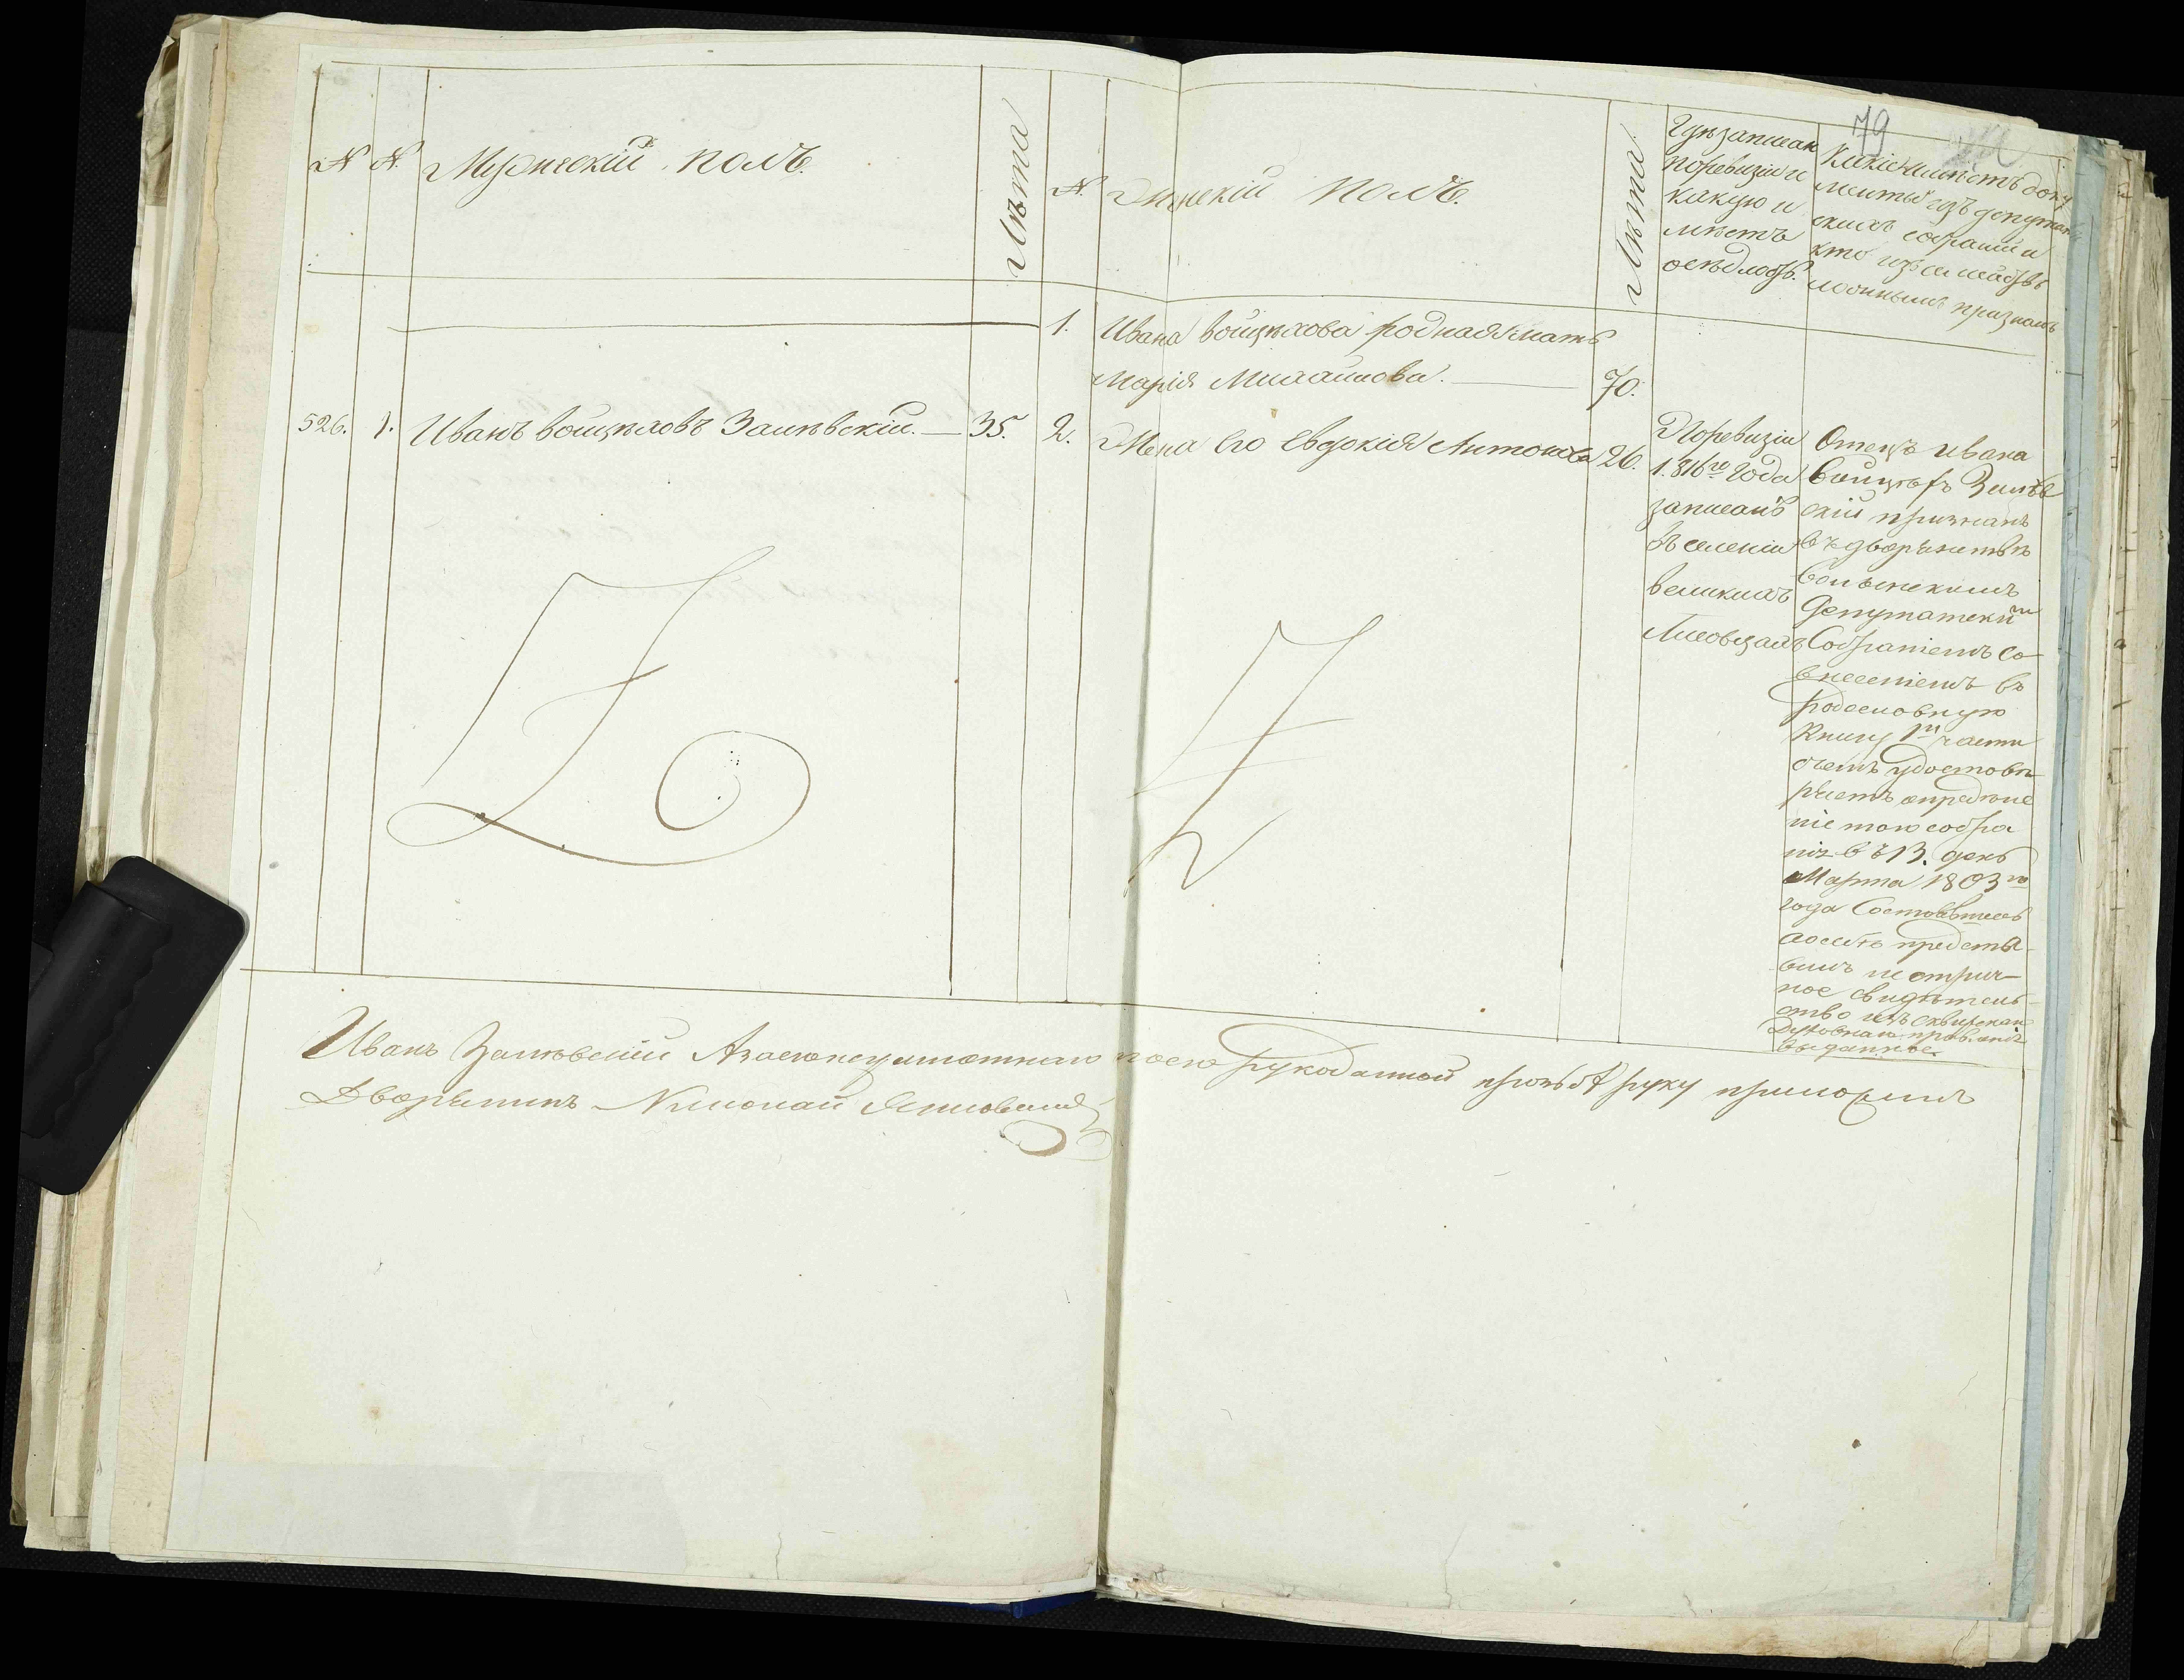 79
№ № Мужескій полъ.
Лѣта
№ Женскій полъ.
Лѣта
Гдѣ записан
по ревизіи и
какую и
мѣетъ
осѣдлость.
Какіе имѣетъ доку
менты изъ депутат
скихъ собраній и
кто изъ семействъ
признанъ
1. Ивана Войцѣхова родная мать
Марія Михайлова. 70.
526. 1. Иванъ Войцѣховъ Залѣвскій. 35.
2. Жена его Евдокія Антонова 26.
По ревизіи
1816го года
записанъ
въ селеніи
великихъ
Лисовцахъ
Отецъ Ивана
Войцѣхъ Залѣв
скій признанъ
въ дворянствѣ
Волынскимъ
Депутатскимъ
Собраніемъ со
внесеніемъ въ
родословную
книгу 1й части
о чемъ удостовѣ
ряетъ опредѣле
ніе того собра
нія въ 13. день
Марта 1803го
года состоявшеесь
предста-
вилъ метрич-
ное свидѣтель-
ство изъ сквирскаго
Духовнаго правленія
выданное.
Иванъ Залѣвскій А за его неграмотнаго по его рукоданной прозьбѣ руку приложилъ
Дворянинъ Николай